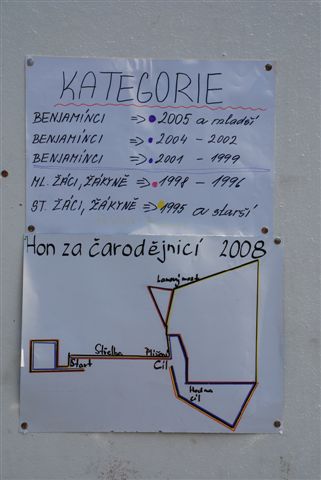 KATEGORIE
BENJAMÍNCI => 2005 a mladší
BENJAMÍNCI => 2004 - 2002
BENJAMÍNCI => 2001 - 1999
ML. ŽÁCI, ŽÁKYNĚ => 1998 - 1996
ST. ŽÁCI, ŽÁKYNĚ => 1995 a starší
Hon za čarodějnicí 2008
Lanový most
Střelba
Start
Cíl